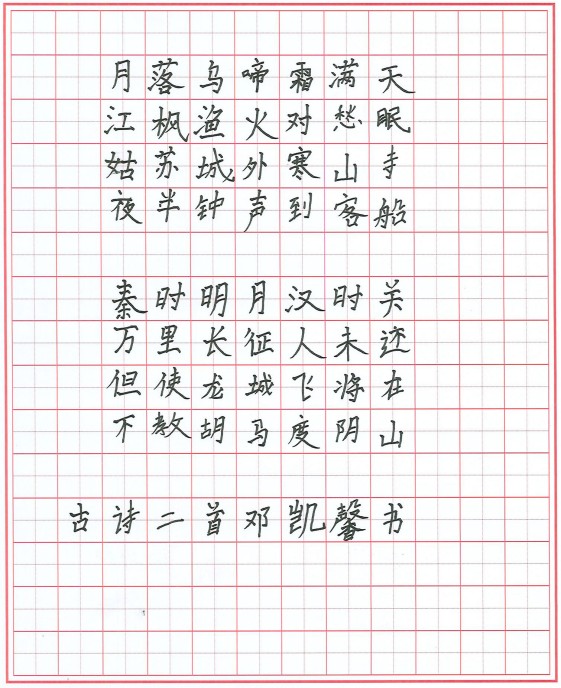 月落乌啼霜满天
江枫渔火对愁眠
姑苏城外寒山寺
夜半钟声到客船
秦时明月汉时关
万里长征人未还
但使龙城飞将在
不教胡马度阴山
古诗二首邓凯馨书